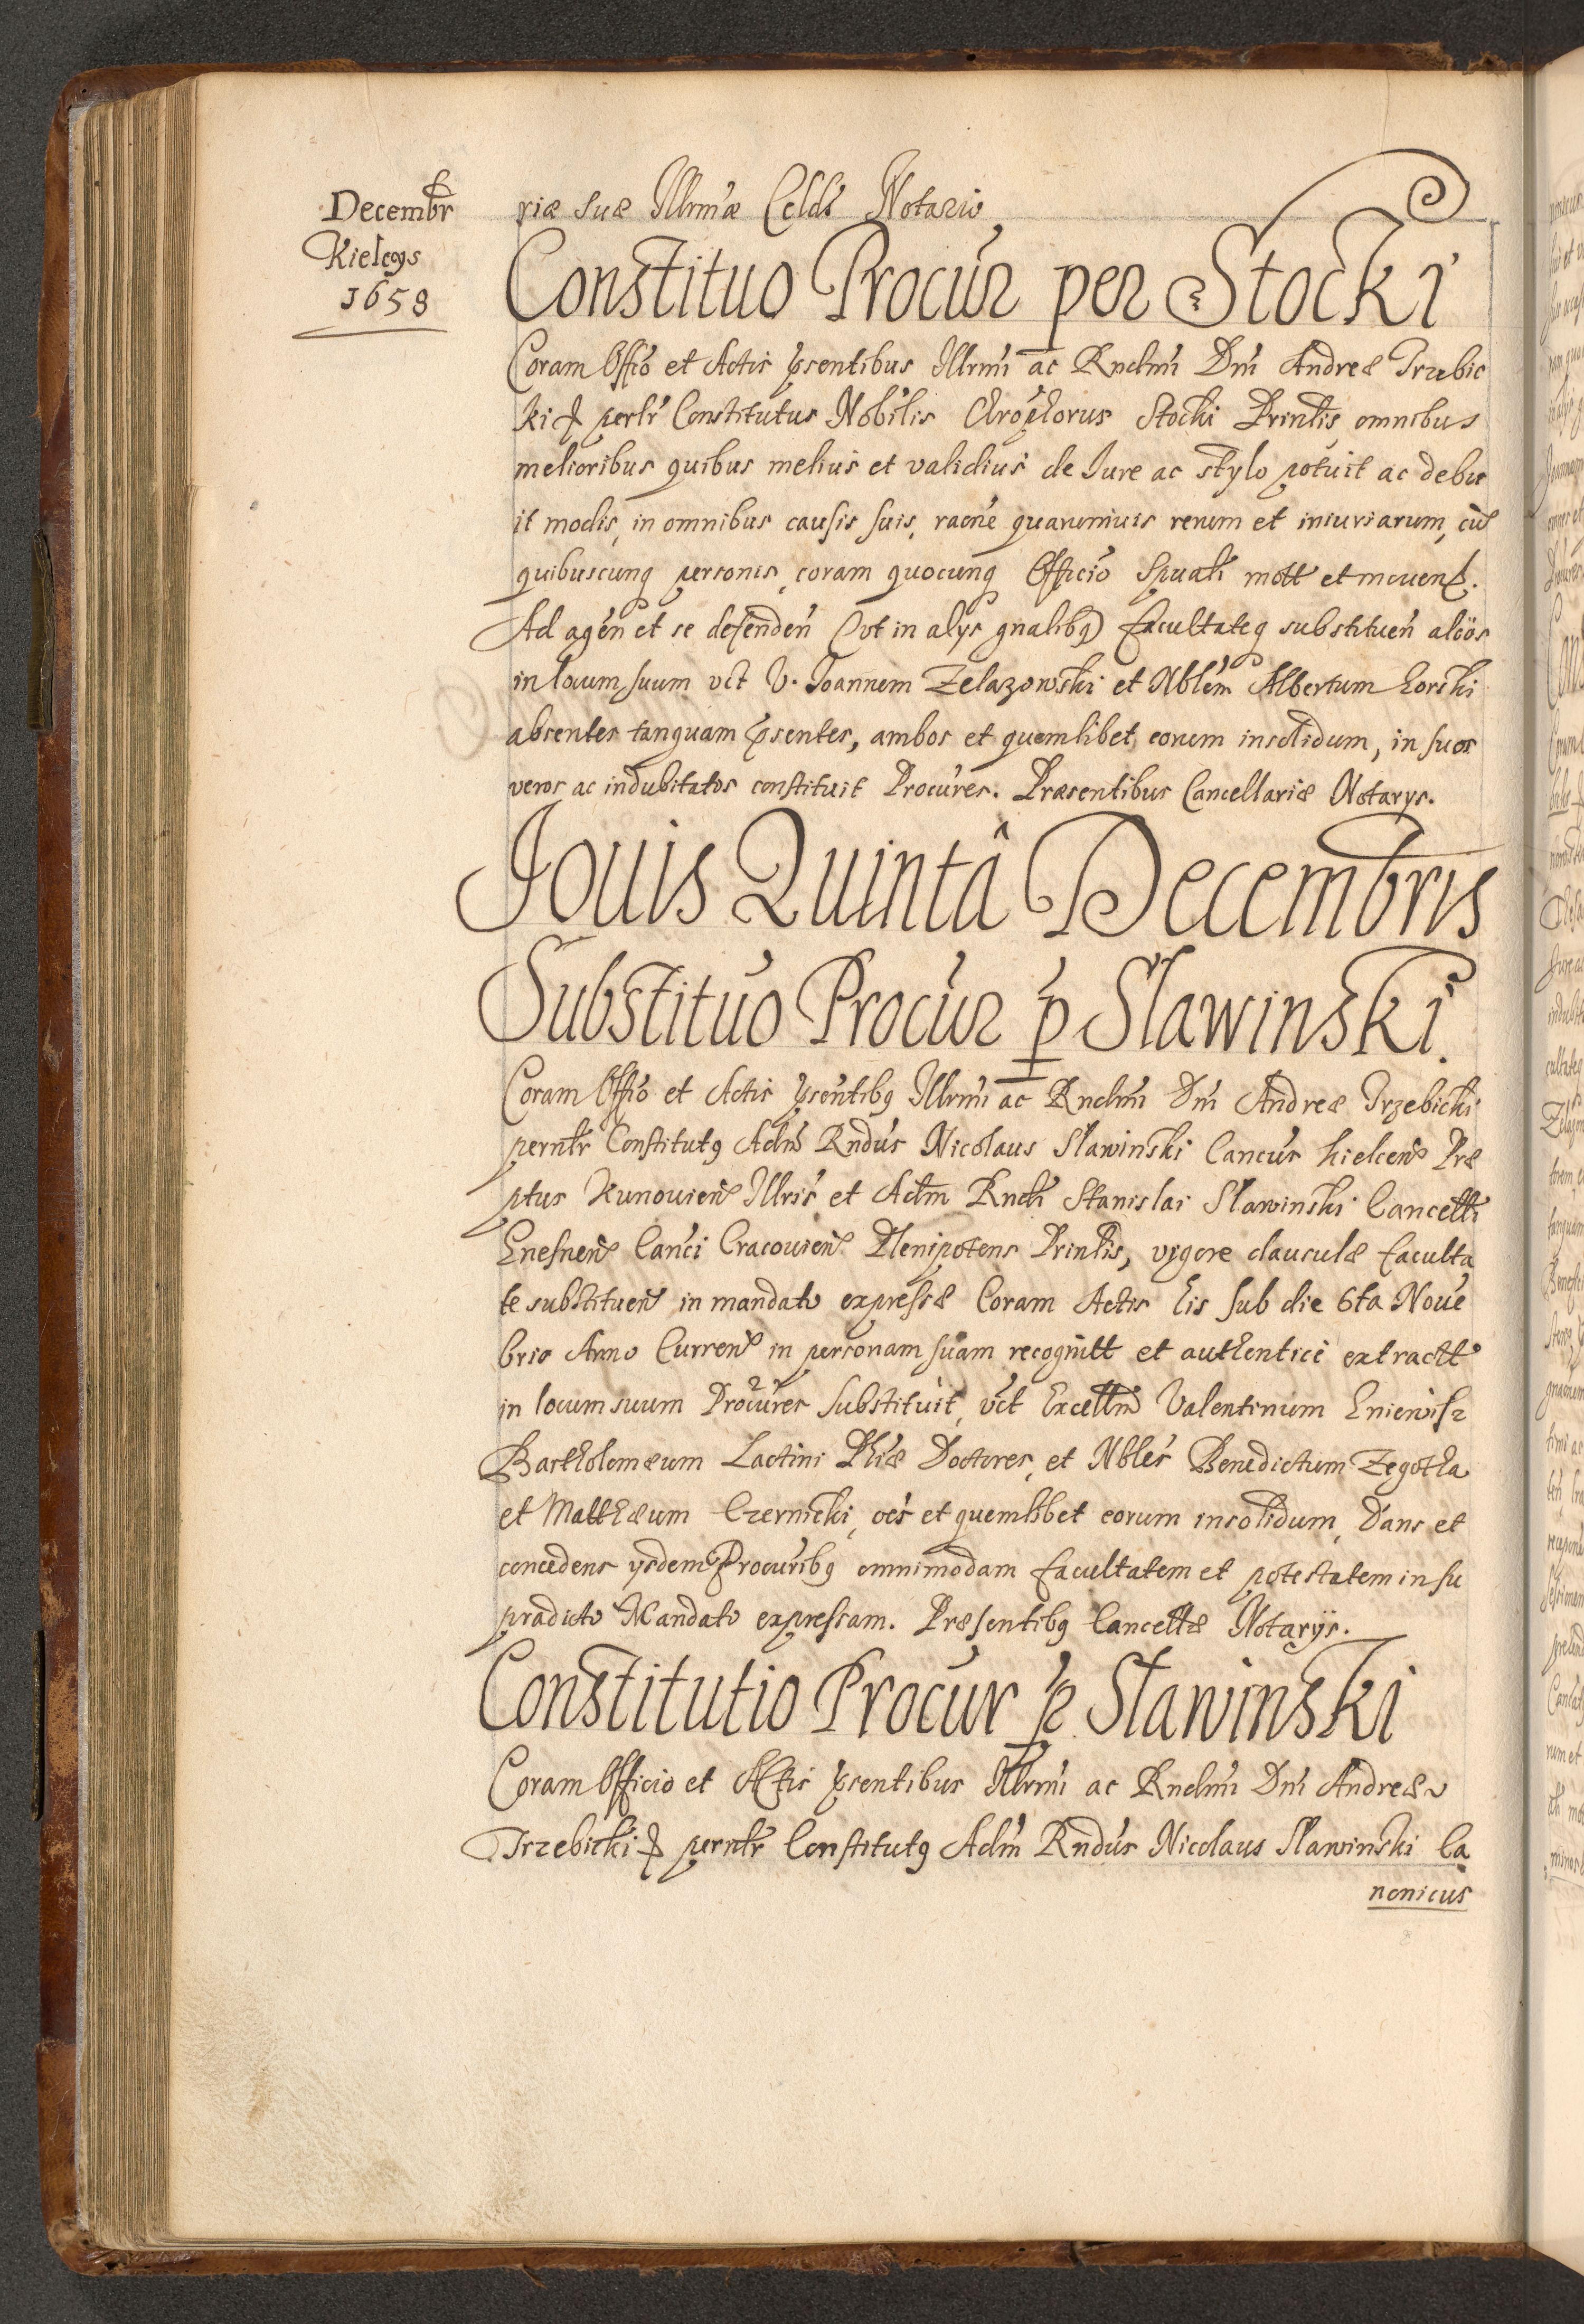 Decembr
Kielcys
1658
riæ suæ Illrmæ Celdi Notario
Constituo Procur per Stocki
Coram Offio et Actis psentibus Illrmi ac Rndmi Dni Andreæ Trzebic
ki perlr Constitutus Nobilis Chrophorus Stocki Prinlis omnibus
melioribus quibus melius et validius de Iure ac stylo potuit ac debu
it modis, in omnibus causis suis, raone quarumuis rerum et iniuriarum, cu
quibuscunq personis, coram quocunq Officio Spuali mott et mouend.
Ad agen et se defenden (vt in alys gnalibq) facultateq substituen alios
in locum suum vct V. Joannem Zelazowski et Nblem Albertum Gorski
absentes tanquam psentes, ambos et quemlibet eorum insolidum, in suos
veros ac indubitatos constituit Procures. Præsentibus Cancellariæ Notarys.
Jouis Quintâ Decembris
Substituo Procur p Slawinski
Coram Offio et Actis psentibq Illrmi ac Rndmi Dni Andreæ Trzebicki
pernlr Constitutq Adm Rndus Nicolaus Slawinski Cancus Kielcen Præ
ptus Kunouien Illris et Adm Rndi Stanislai Slawinski Cancelli
Gnesnen Canci Cracouien Plenipotens Prinlis, vigore clausulæ faculta
te substituen in mandato expressæ Coram Actis his sub die 6ta Noue
bris Anno Curren in personam suam recognitt et authentice extractt
in locum suum Procures Substituit, vct Excellm Valentinum Gniewisz
Bartholomæum Lactini Phiæ Doctores, et Nbles Benedictum Zegotha
et Matthæum Czernicki, oes et quemlibet eorum insolidum, Dans et
concedens ysdem Procuribq omnimodam facultatem et potestatem in su
pradicto Mandato expressam. Præsentibq Cancellæ Notarijs.
Constitutio Procur p Slawinski
Coram Officio et Actis psentibus Illrmi ac Rndmi Dni Andreæ
Trzebicki pernlr Constitutq Adm Rndus Nicolaus Slawinski Ca
nonicus